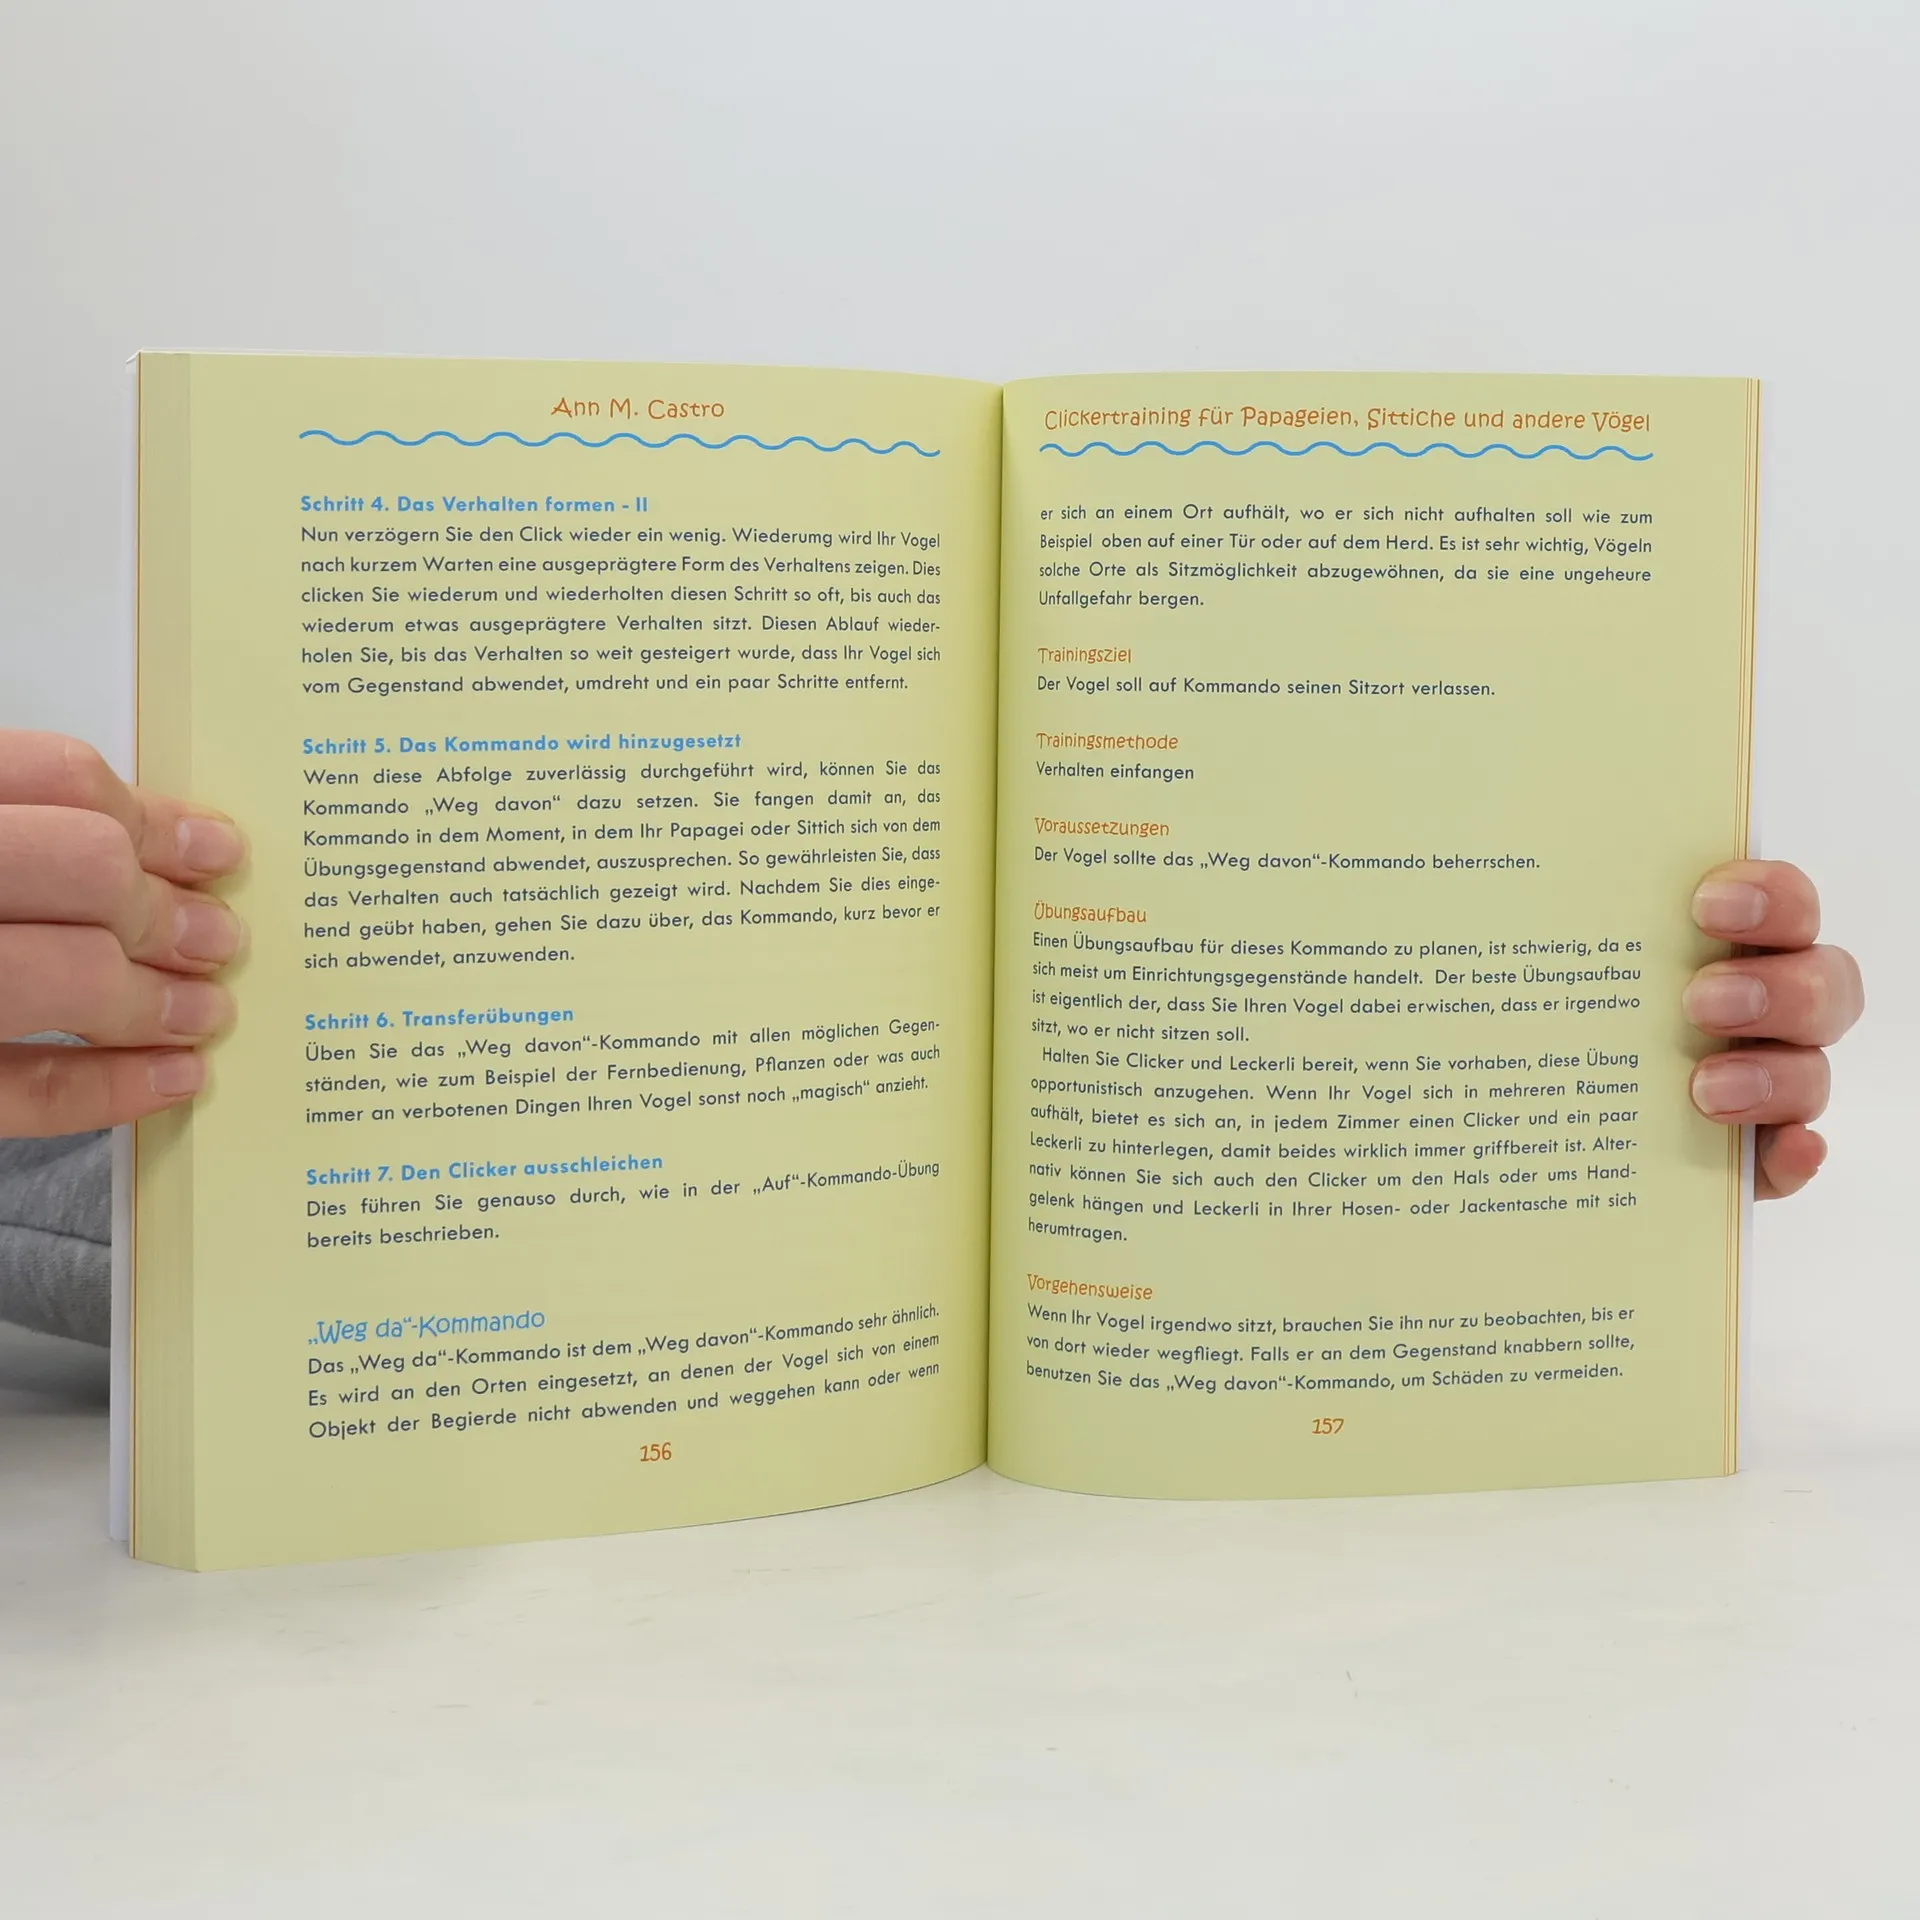 Ann M. Castro
Schritt 4. Das Verhalten formen - II
Nun verzögern Sie den Click wieder ein wenig. Wiederumg wird Ihr Vogel
nach kurzem Warten eine ausgeprägtere Form des Verhaltens zeigen. Dies
clicken Sie wiederum und wiederholten diesen Schritt so oft, bis auch das
wiederum etwas ausgeprägtere Verhalten sitzt. Diesen Ablauf wieder-
holen Sie, bis das Verhalten so weit gesteigert wurde, dass Ihr Vogel sich
vom Gegenstand abwendet, umdreht und ein paar Schritte entfernt.
Schritt 5. Das Kommando wird hinzugesetzt
Wenn diese Abfolge zuverlässig durchgeführt wird, können Sie das
Kommando „Weg davon“ dazu setzen. Sie fangen damit an, das
Kommando in dem Moment, in dem Ihr Papagei oder Sittich sich von dem
Übungsgegenstand abwendet, auszusprechen. So gewährleisten Sie, dass
das Verhalten auch tatsächlich gezeigt wird. Nachdem Sie dies einge-
hend geübt haben, gehen Sie dazu über, das Kommando, kurz bevor er
sich abwendet, anzuwenden.
Schritt 6. Transferübungen
Üben Sie das „Weg davon“-Kommando mit allen möglichen Gegen-
ständen, wie zum Beispiel der Fernbedienung, Pflanzen oder was auch
immer an verbotenen Dingen Ihren Vogel sonst noch „magisch“ anzieht.
Schritt 7. Den Clicker ausschleichen
Dies führen Sie genauso durch, wie in der „Auf“-Kommando-Übung
bereits beschrieben.
„Weg da“-Kommando
Das „Weg da“-Kommando ist dem „Weg davon“-Kommando sehr ähnlich.
Es wird an den Orten eingesetzt, an denen der Vogel sich von einem
Objekt der Begierde nicht abwenden und weggehen kann oder wenn
156
Clickertraining für Papageien, Sittiche und andere Vögel
er sich an einem Ort aufhält, wo er sich nicht aufhalten soll wie zum
Beispiel oben auf einer Tür oder auf dem Herd. Es ist sehr wichtig, Vögeln
solche Orte als Sitzmöglichkeit abzugewöhnen, da sie eine ungeheure
Unfallgefahr bergen.
Trainingsziel
Der Vogel soll auf Kommando seinen Sitzort verlassen.
Trainingsmethode
Verhalten einfangen
Voraussetzungen
Der Vogel sollte das „Weg davon“-Kommando beherrschen.
Übungsaufbau
Einen Übungsaufbau für dieses Kommando zu planen, ist schwierig, da es
sich meist um Einrichtungsgegenstände handelt. Der beste Übungsaufbau
ist eigentlich der, dass Sie Ihren Vogel dabei erwischen, dass er irgendwo
sitzt, wo er nicht sitzen soll.
Halten Sie Clicker und Leckerli bereit, wenn Sie vorhaben, diese Übung
opportunistisch anzugehen. Wenn Ihr Vogel sich in mehreren Räumen
aufhält, bietet es sich an, in jedem Zimmer einen Clicker und ein paar
Leckerli zu hinterlegen, damit beides wirklich immer griffbereit ist. Alter-
nativ können Sie sich auch den Clicker um den Hals oder ums Hand-
gelenk hängen und Leckerli in Ihrer Hosen- oder Jackentasche mit sich
herumtragen.
Vorgehensweise
Wenn Ihr Vogel irgendwo sitzt, brauchen Sie ihn nur zu beobachten, bis er
von dort wieder wegfliegt. Falls er an dem Gegenstand knabbern sollte,
benutzen Sie das „Weg davon“-Kommando, um Schäden zu vermeiden.
157